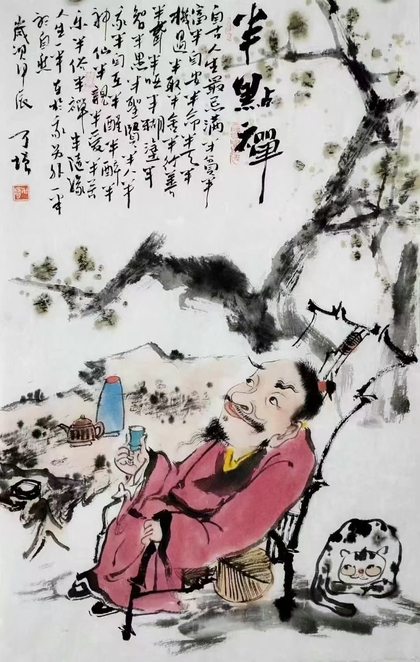 半點禪
自古人生最忌滿半貧半
富半自安半命半天半
機遇半取半舍半行善
半聾半啞半糊塗半
智半愚半聖賢半人半
我半自在半醒半醉半
神仙半親半愛半苦
樂半俗半禪半隨緣
人生一半在於我另外一半
聽自然
歲次甲辰